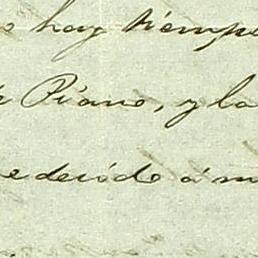 o hay tiempo
Piano, y la
edecido á m